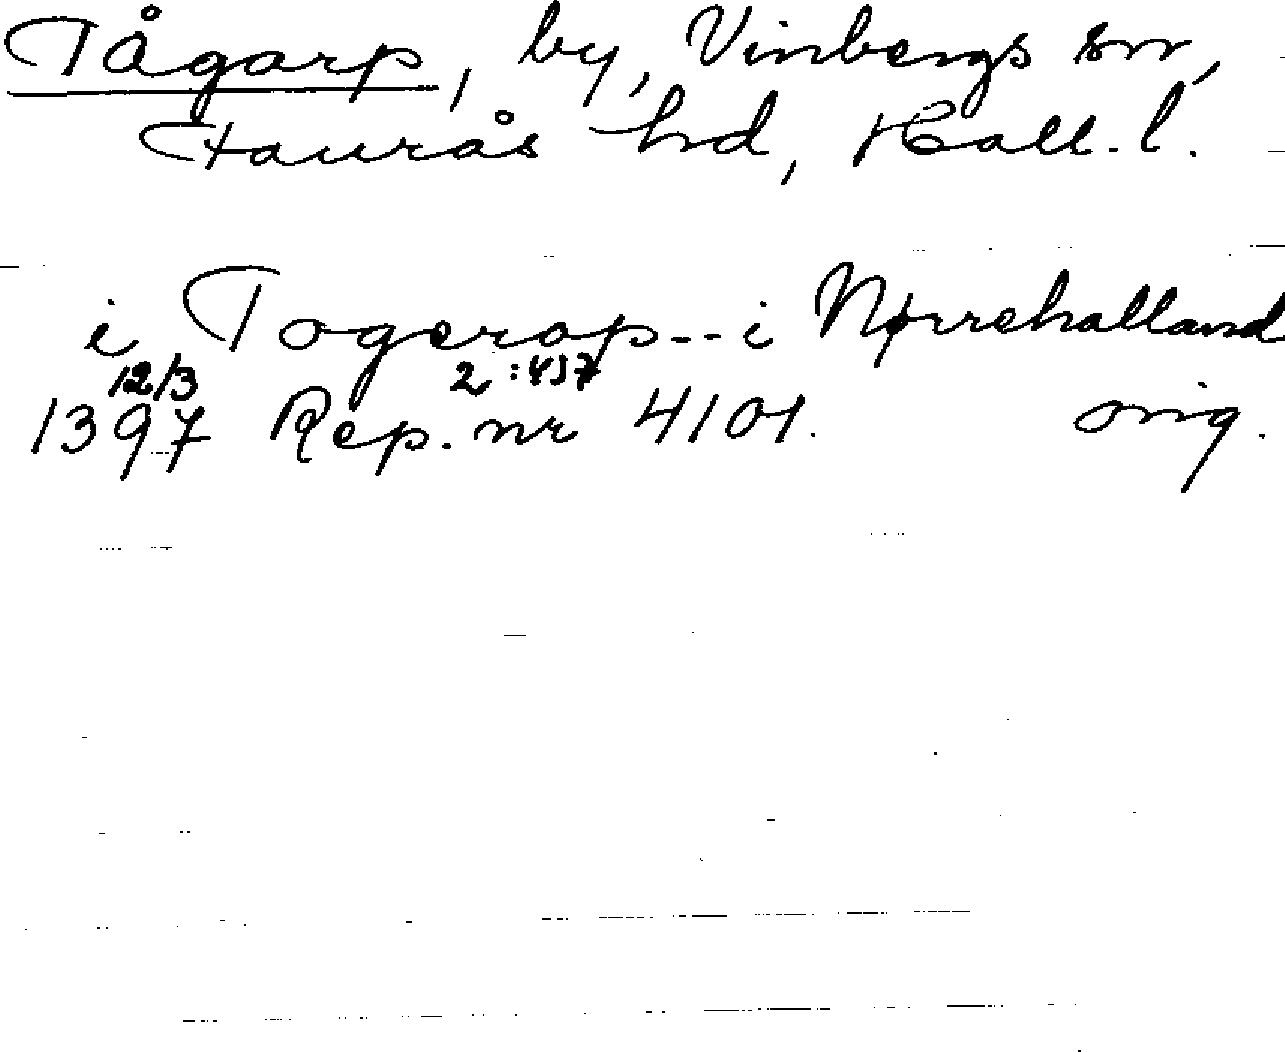 Tågarp, by, Vinbergs sn,
Faurås hd, Hall. l.
i Togerop -- i Nørrehalland
12/3 2:437
1397 Rep. nr 4101. orig.